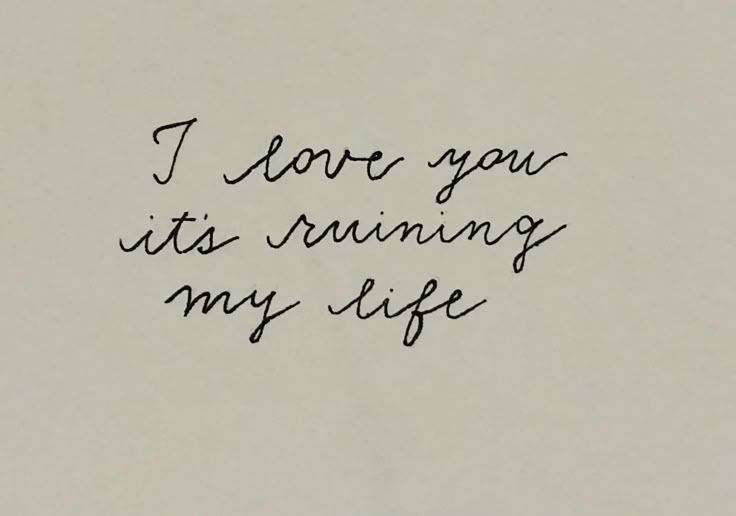 I love you
it's ruining
my life